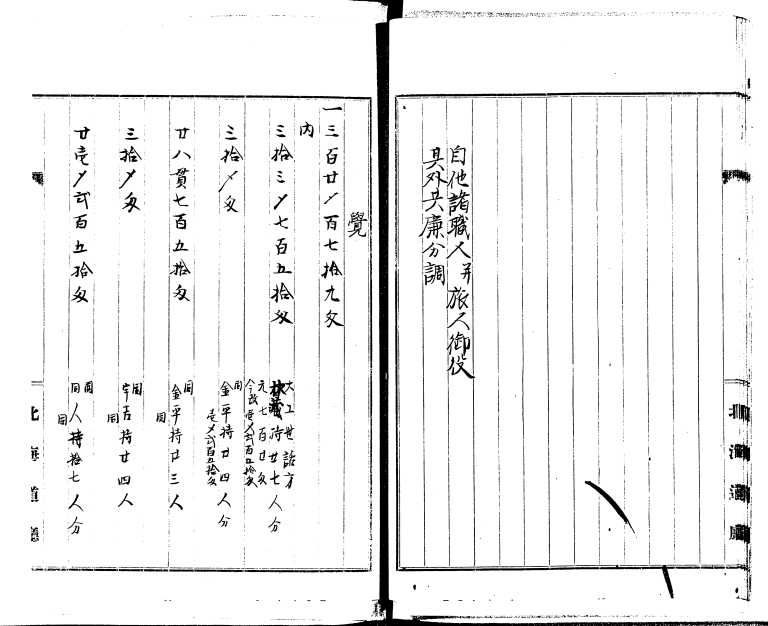 自他諸職人并旅人御役
其外共廉分調
覺
一三百廿〆百七拾九匁
内
三拾三〆七百五拾匁
大工世話方
持廿七人分
元七百廿匁
今改壱〆弐百五拾匁
三拾〆匁
同
金平持廿四人分
壱〆弐百五拾匁
廿八貫七百五拾匁
同
金平持廿三人
同
三拾〆匁
同
宇吉持廿四人
同
廿壱〆弐百五拾匁
同
同人持拾七人分
同
北海道廳